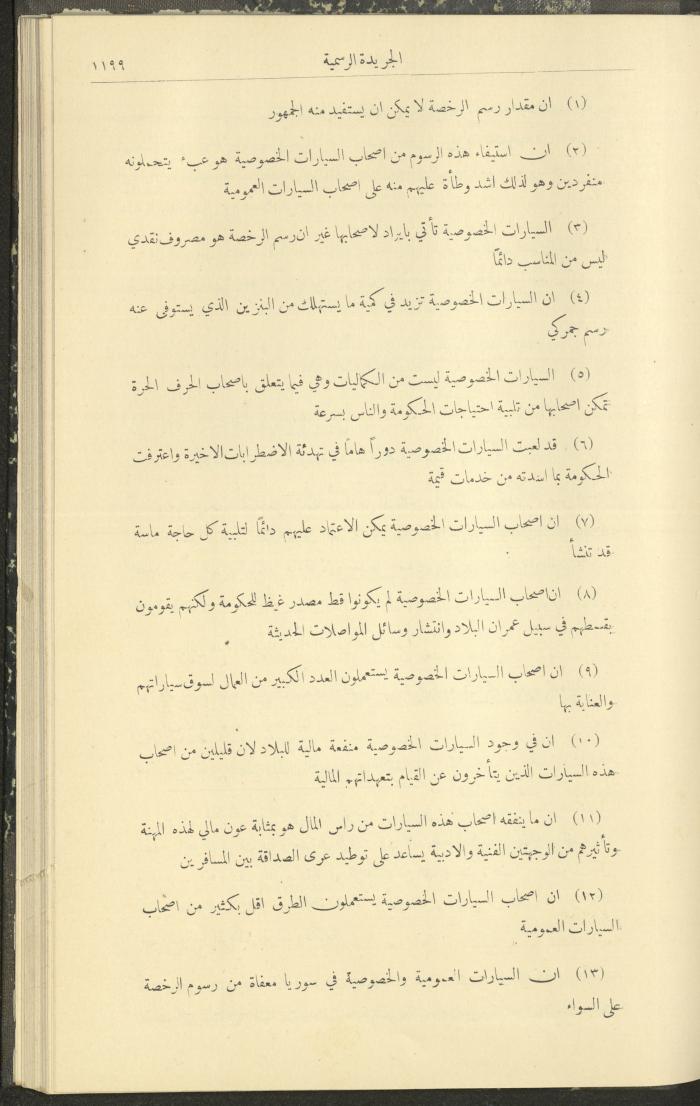 الجريدة الرسمية
١١٩٩
(١) ان مقدار رسم الرخصة لا يمكن ان يستفيد منه الجمهور
(٢) ان استيفاء هذه الرسوم من اصحاب السيارات الخصوصية هو عبء يتحملونه
منفردين وهو لذلك اشد وطأة عليهم منه على اصحاب السيارات العمومية
(٣) السيارات الخصوصية تأتي بايراد لاصحابها غير ان رسم الرخصة هو مصروف نقدي
ليس من المناسب دائمًا
(٤) ان السيارات الخصوصية تزيد في كمية ما يستهلك من البنزين الذي يستوفى عنه
رسم جمركي
(٥) السيارات الخصوصية ليست من الكماليات وهي فيما يتعلق باصحاب الحرف الحرة
تمكن اصحابها من تلبية احتياجات الحكومة والناس بسرعة
(٦) قد لعبت السيارات الخصوصية دوراً هامًا في تهدئة الاضطرابات الاخيرة واعترفت
الحكومة بما اسدته من خدمات قيمة
(٧) ان اصحاب السيارات الخصوصية يمكن الاعتماد عليهم دائمًا لتلبية كل حاجة ماسة
قد تنشأ
(٨) ان اصحاب السيارات الخصوصية لم يكونوا قط مصدر غيظ للحكومة ولكنهم يقومون
بقسطهم في سبيل عمران البلاد وانتشار وسائل المواصلات الحديثة
(٩) ان اصحاب السيارات الخصوصية يستعملون العدد الكبير من العمال لسوق سياراتهم
والعناية بها
(١٠) ان في وجود السيارات الخصوصية منفعة مالية للبلاد لان قليلين من اصحاب
هذه السيارات الذين يتأخرون عن القيام بتعهداتهم المالية
(١١) ان ما ينفقه اصحاب هذه السيارات من راس المال هو بمثابة عون مالي لهذه المهنة
وتأثيرهم من الوجهتين الفنية والادبية يساعد على توطيد عرى الصداقة بين المسافرين
(١٢) ان اصحاب السيارات الخصوصية يستعملون الطرق اقل بكثير من اصحاب
السيارات العمومية
(١٣) ان السيارات العمومية والخصوصية في سوريا معفاة من رسوم الرخصة
على السواء